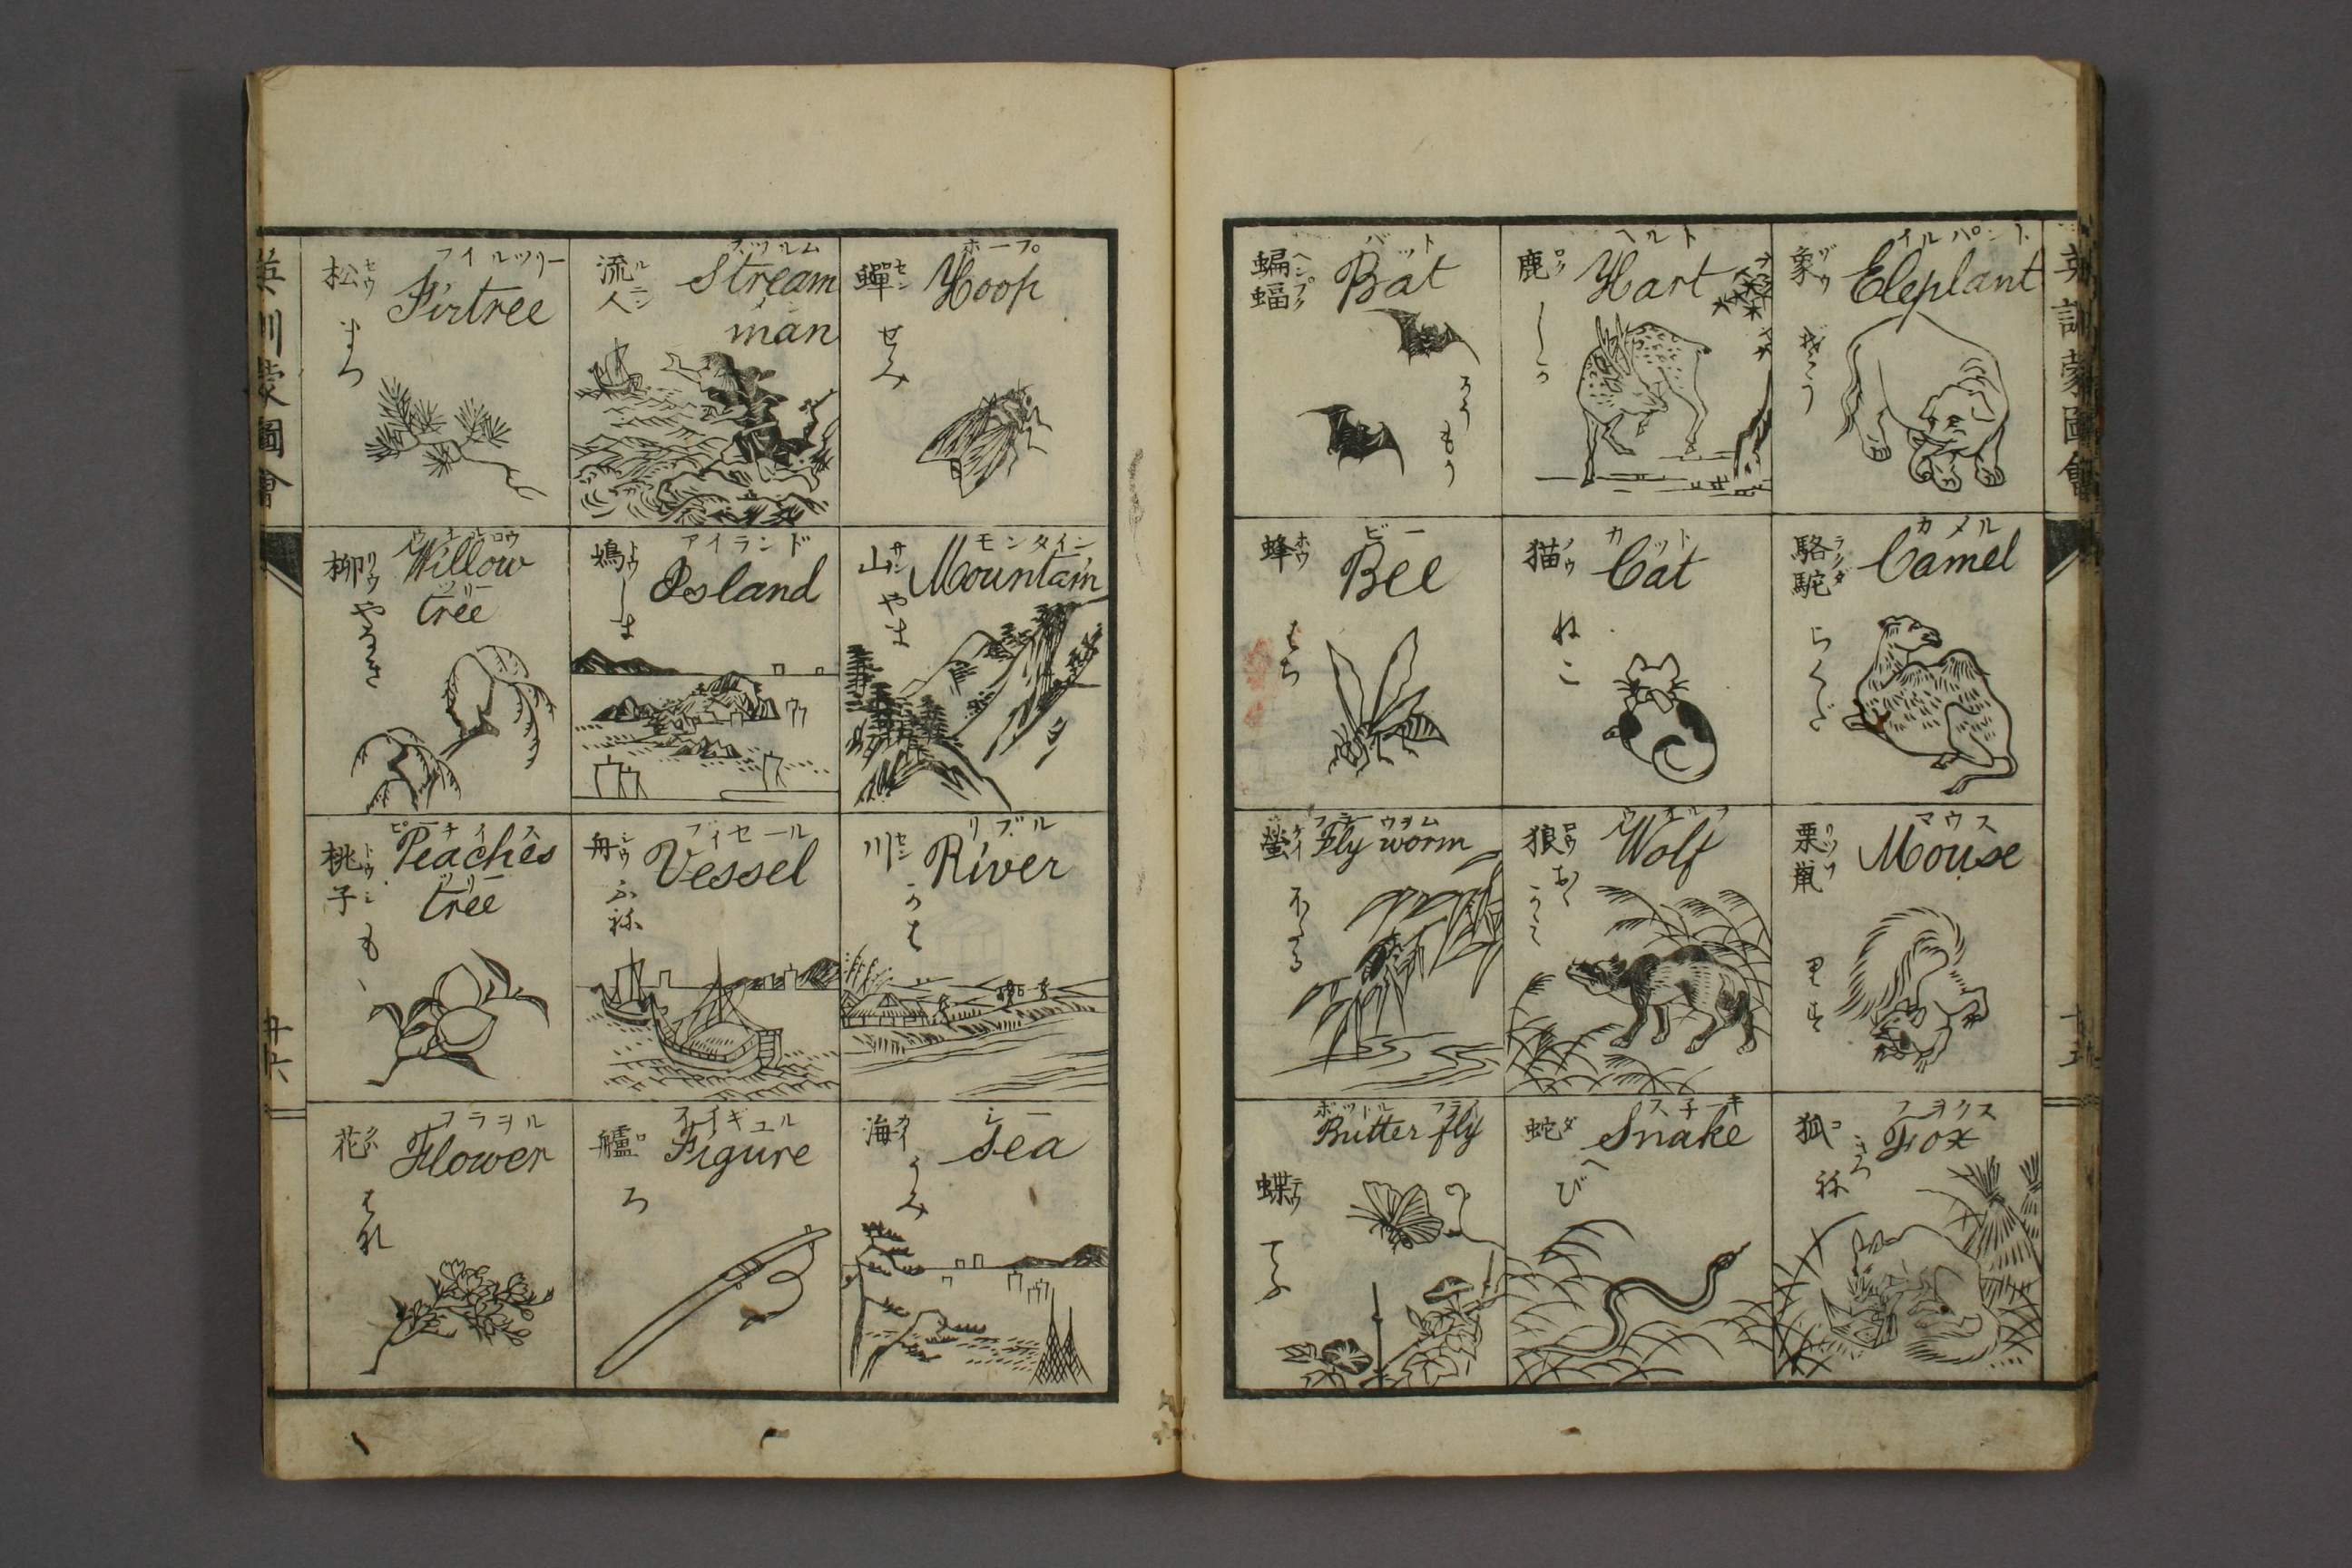 英訓蒙圖會
イルパント
Eleplant
象
ゾウ
ざう
カメル
Camel
駱駝
ラクダ
らくだ
マウス
Mouse
栗鼠
リツソ
りす
フヲクス
Fox
狐
コ
きつね
ヘルト
Hart
鹿
ロク
しか
カット
Cat
猫
ねこ
ウヲルフ
Wolf
狼
ロウ
おゝかミ
スチーキ
Snake
蛇
ダ
へび
バット
Bat
蝙蝠
ヘンプク
かうもり
ビー
Bee
蜂
ホウ
はち
フライウヲム
Fly worm
螢
ケイ
ホたる
ボットル フライ
Butter fly
蝶
テウ
てふ
ホープ
Hoop
蟬
セン
せみ
モンタイン
Mountain
山
サン
やま
リブル
River
川
セン
かは
シー
Sea
海
カイ
うみ
ストルム
Stream
man
流人
ルニン
アイランド
Island
嶋
トウ
しま
フイセール
Vessel
舟
シウ
ふね
フイギュル
Figure
艫
ロ
ろ
フイルツリー
Firtree
松
セウ
まつ
ウエルロウ
Willow
ツリー
tree
柳
リウ
やなぎ
ピーチイス
Peaches
ツリー
tree
桃子
トウシ
もゝ
フラヲル
Flower
花
クハ
はな
英訓蒙圖會
廿六